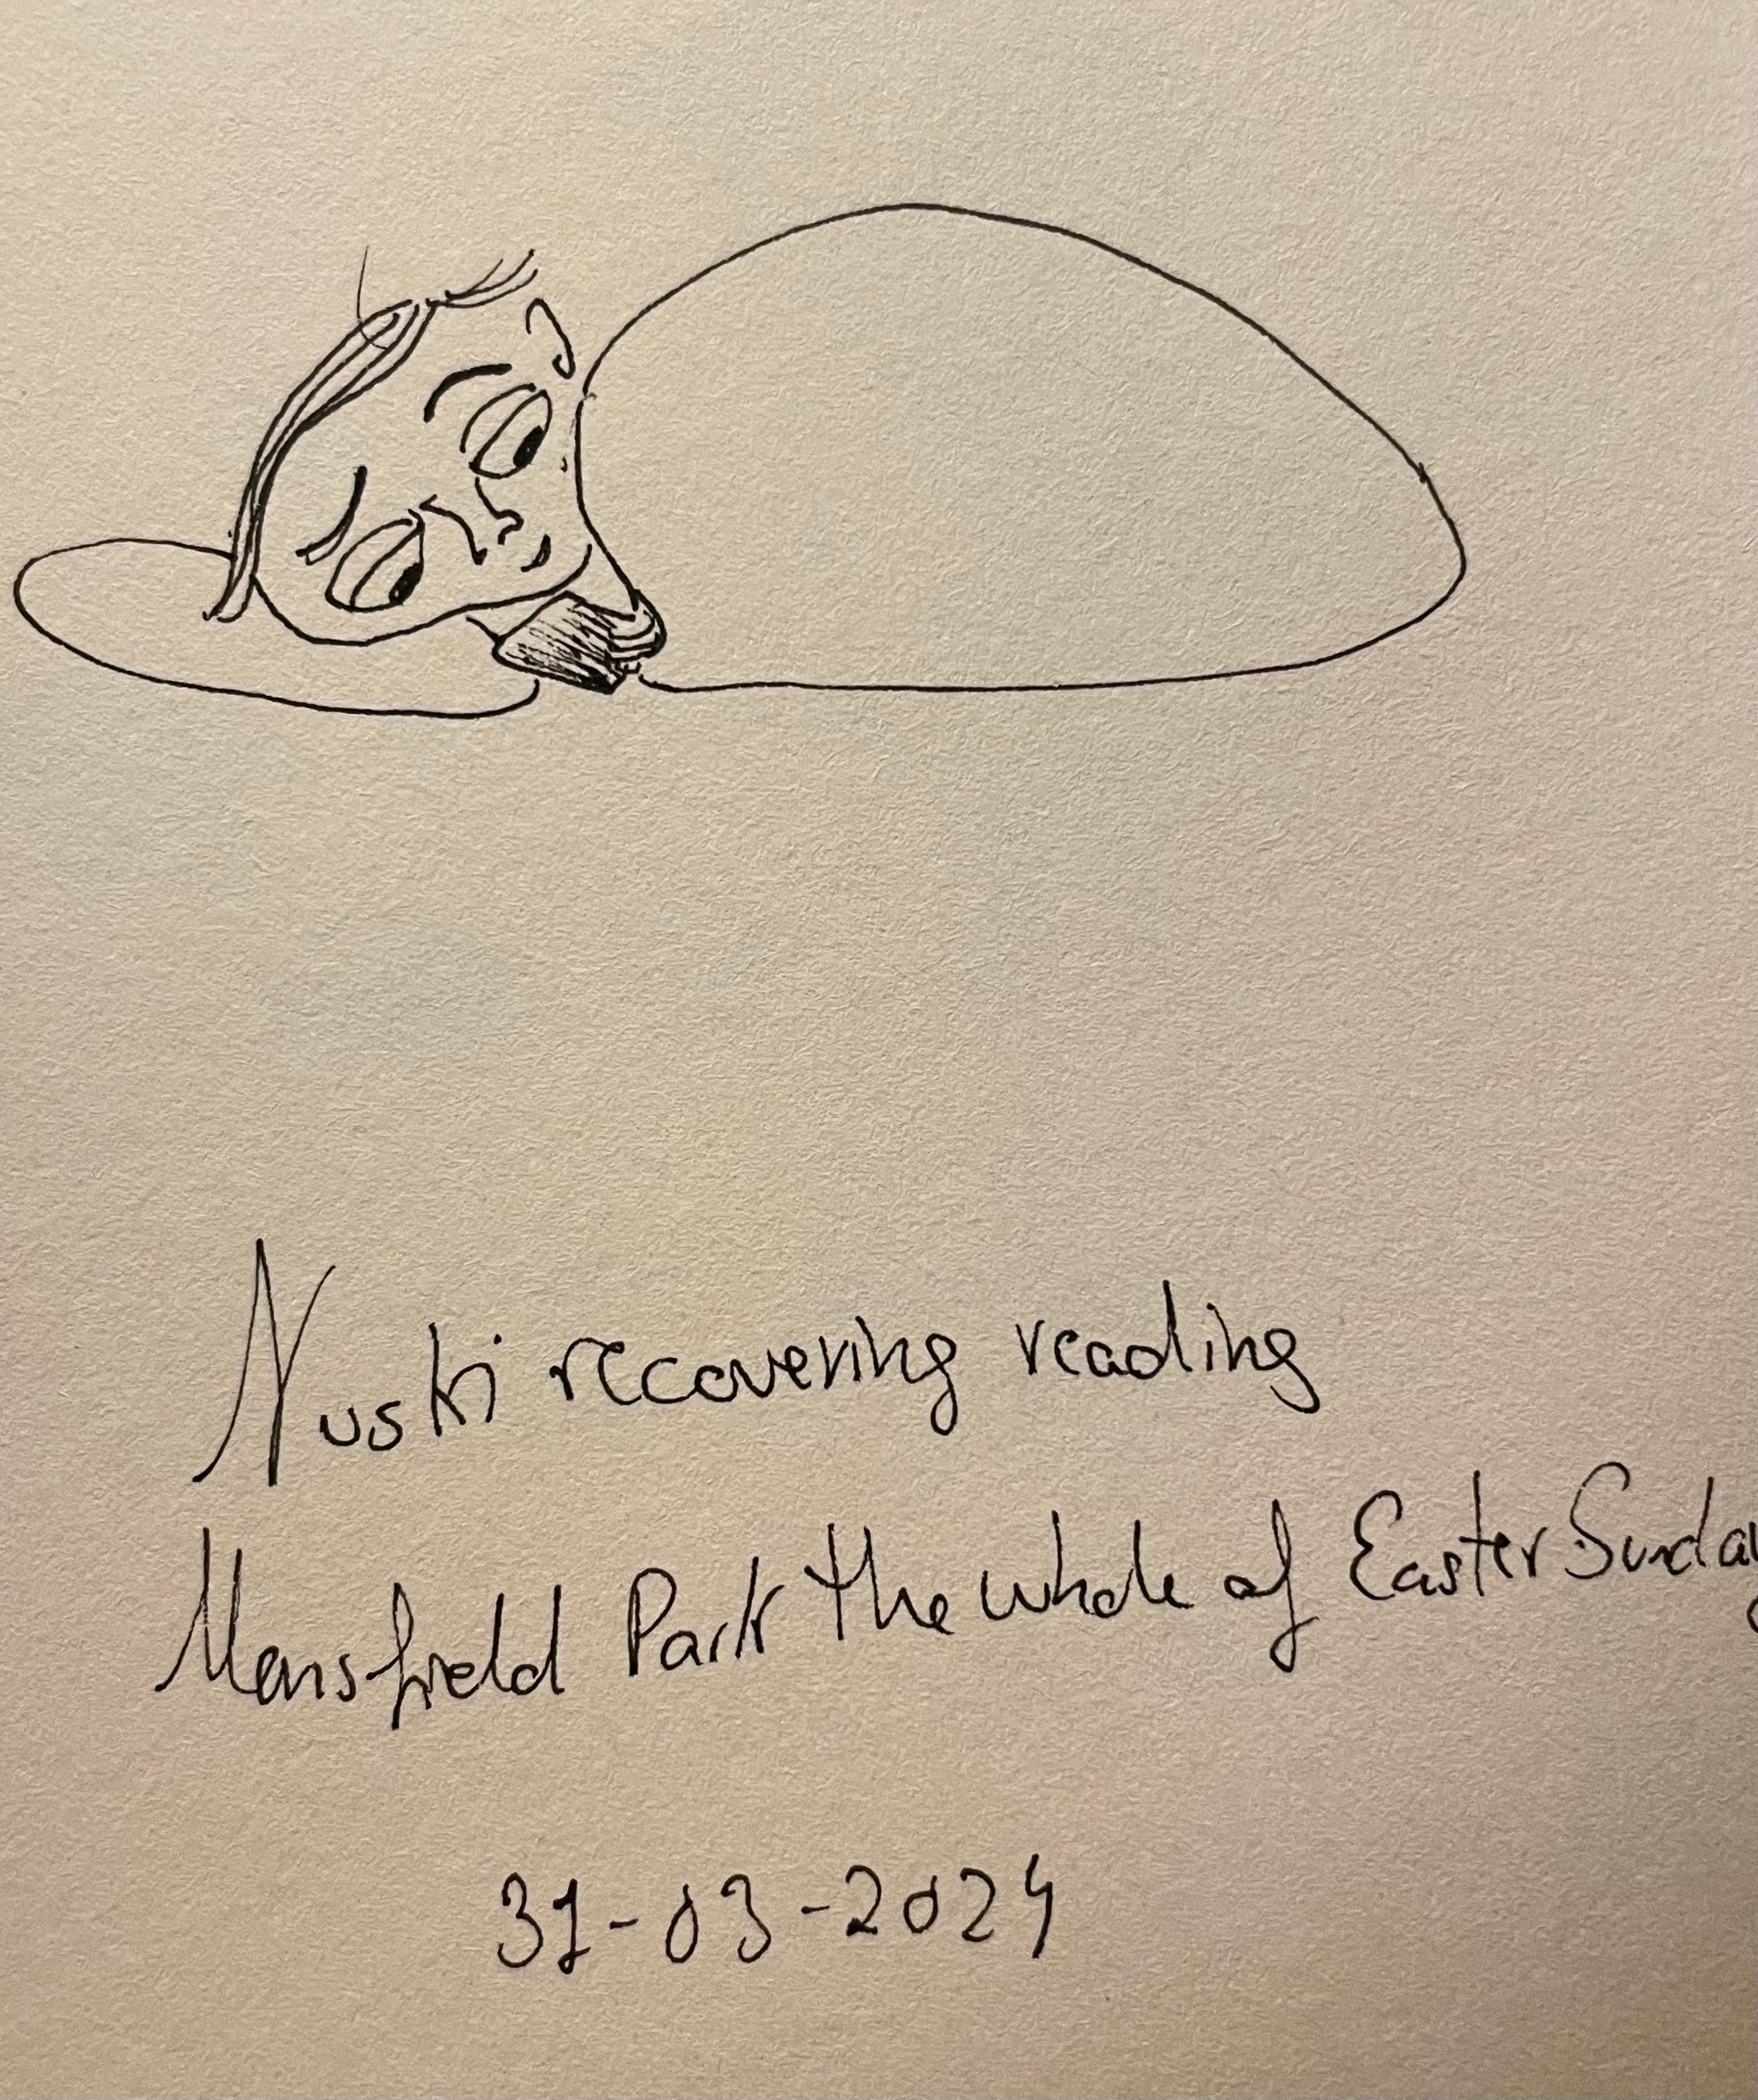 Nuski recovering reading
Mansfield Park the whole of Easter Sunday
31-03-2024